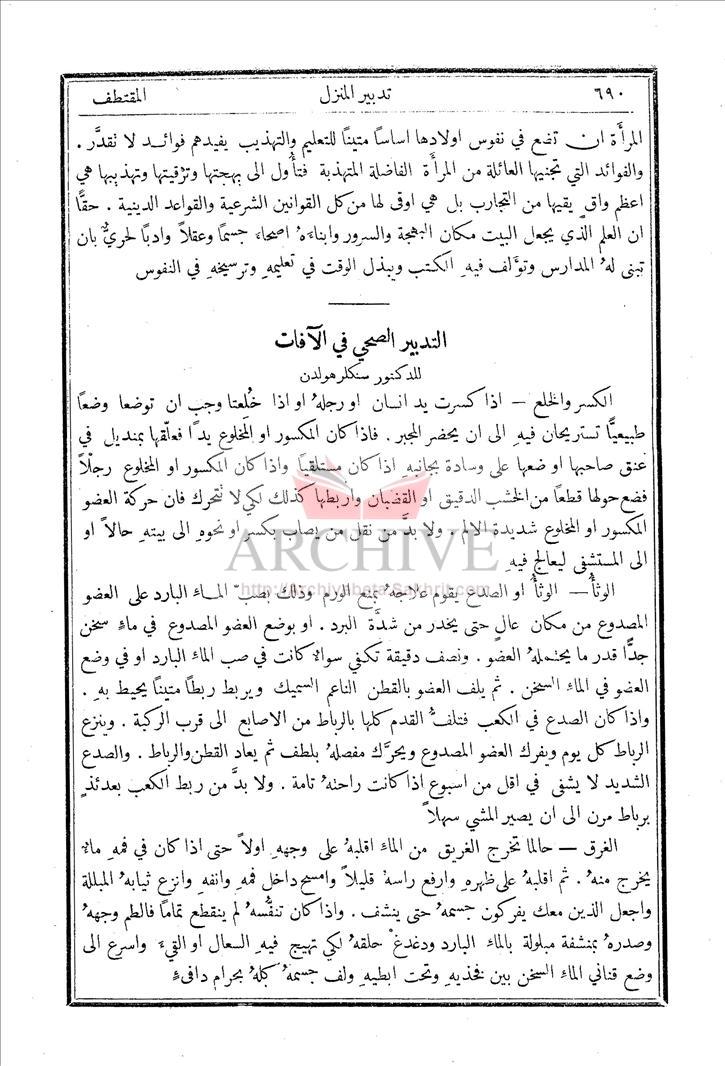 ٦٩٠ تدبير المنزل المقتطف
المرأة ان تضع في نفوس اولادها اساساً متيناً للتعليم والتهذيب يفيدهم فوائد لا تقدَّر .
والفوائد التي تجنيها العائلة من المرأة الفاضلة المتهذبة فتأول الى بهجتها وترقيتها وتهذيبها هي
اعظم واقٍ يقيها من التجارب بل هي اوقى لها من كل القوانين الشرعية والقواعد الدينية . حقًّا
ان العلم الذي يجعل البيت مكان البهجة والسرور وابناءهُ اصحاء جسماً وعقلاً وادباً لحريٌّ بان
تبنى لهُ المدارس وتؤلف فيهِ الكتب ويبذل الوقت في تعليمهِ وترسيخهِ في النفوس
التدبير الصحي في الآفات
للدكتور سنكلر هولدن
الكسر والخلع – اذا كسرت يد انسان او رجله او اذا خُلعتا وجب ان توضعا وضعاً
طبيعيًّا تستريحان فيهِ الى ان يحضر المجبر . فاذا كان المكسور او المخلوع يداً فعلّقها بمنديل في
عنق صاحبها او ضعها على وسادة بجانبهِ اذا كان مستلقياً واذا كان المكسور او المخلوع رجلاً
فضع حولها قطعاً من الخشب الدقيق او القضبان واربطها كذلك لكي لا تتحرك فان حركة العضو
المكسور او المخلوع شديدة الالم . ولا بدَّ من نقل من يصاب بكسر او نحوهِ الى بيتهِ حالاً او
الى المستشفى ليعالج فيهِ
ARCHIVE
http://Archivebeta.Sakhrit.com
الوثأُ – الوثأُ او الصدع يقوم علاجهُ بمنع الورم وذلك بصبّ الماء البارد على العضو
المصدوع من مكان عالٍ حتى يخدر من شدَّة البرد . او بوضع العضو المصدوع في ماءٍ سخن
جدًّا قدر ما يحتملهُ العضو . ونصف دقيقة تكفي سواء كانت في صب الماء البارد او في وضع
العضو في الماء السخن . ثم يلف العضو بالقطن الناعم السميك ويربط ربطاً متيناً يحيط بهِ .
واذا كان الصدع في الكعب فتلفُّ القدم كلها بالرباط من الاصابع الى قرب الركبة . وينزع
الرباط كل يوم ويفرك العضو المصدوع ويحرَّك مفصلهُ بلطف ثم يعاد القطن والرباط . والصدع
الشديد لا يشفى في اقل من اسبوع اذا كانت راحتهُ تامة . ولا بدَّ من ربط الكعب بعدئذٍ
برباط مرن الى ان يصير المشي سهلاً
الغرق – حالما تخرج الغريق من الماء اقلبهُ على وجههِ اولاً حتى اذا كان في فمهِ ماءٌ
يخرج منهُ . ثم اقلبهُ على ظهرهِ وارفع راسهُ قليلاً وامسح داخل فمهِ وانفهِ وانزع ثيابهُ المبللة
واجعل الذين معك يفركون جسمهُ حتى ينشف . واذا كان تنفُّسهُ لم ينقطع تماماً فالطم وجههُ
وصدرهُ بمنشفة مبلولة بالماء البارد ودغدغْ حلقهُ لكي تهيج فيهِ السعال او القيء واسرع الى
وضع قناني الماء السخن بين فخذيهِ وتحت ابطيهِ ولف جسمهُ كلهُ بحرام دافىءٍ